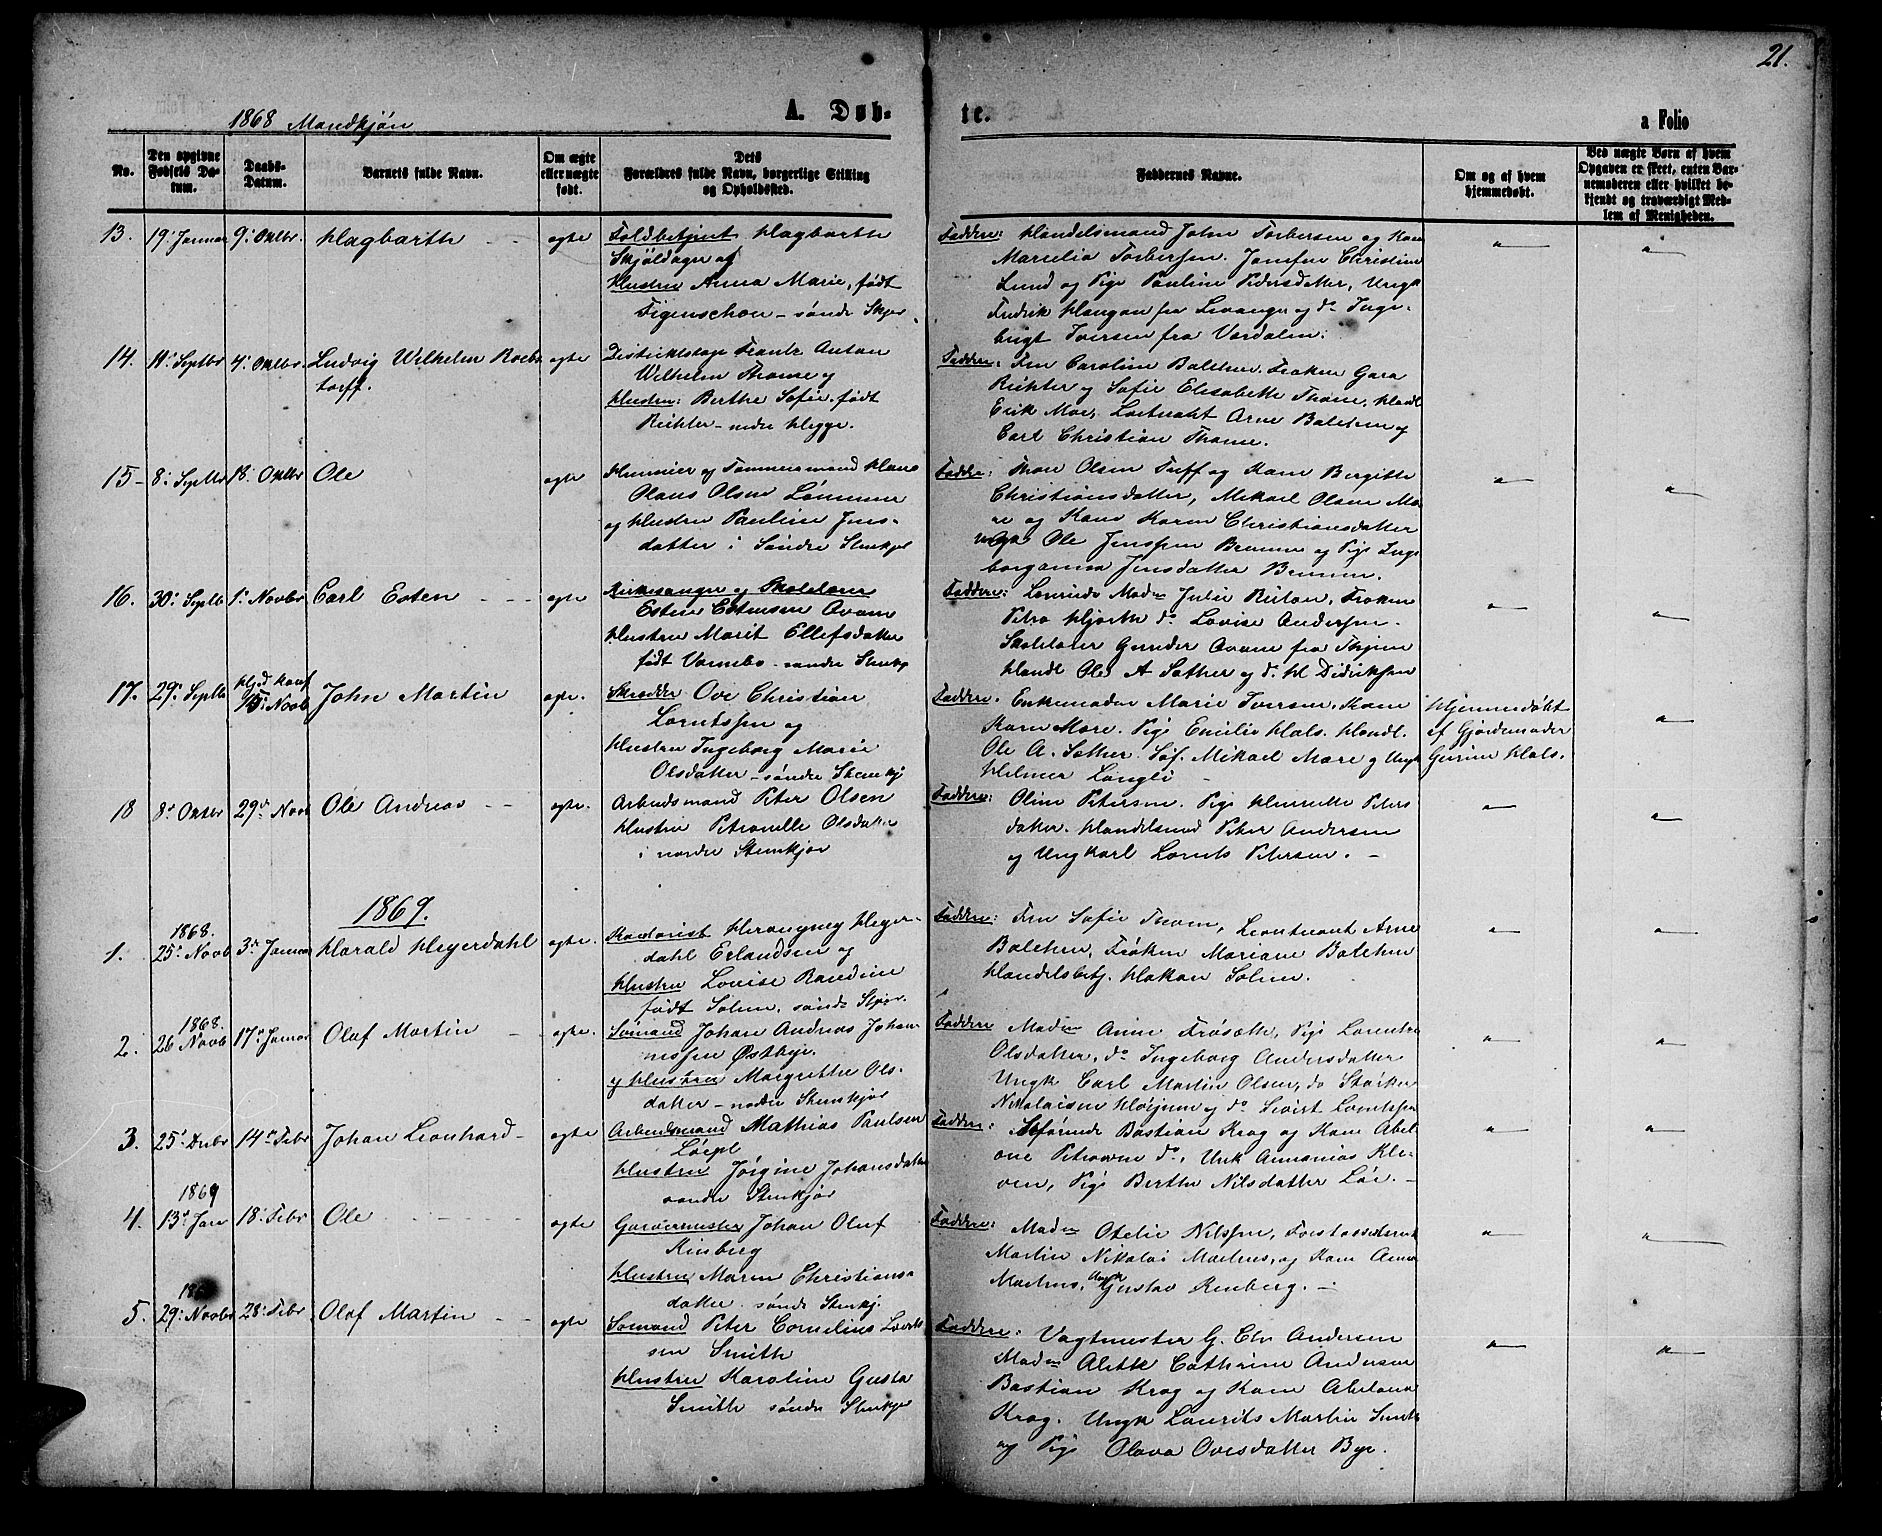 21.
1868 Mandkjøn
A. Døb-
te.
a Folio
No.
Den opgivne Fødsels Da-tum.
Daabs-Datum.
Barnets fulde Navn.
Om ægte eller uægte født.
Dets Forældres fulde Navn, borgerlige Stilling og Opholdssted.
Faddernes Navne.
Om og af hvem hjemmedøbt.
Ved uægte Børn af hvem Opgaven er skeet, enten Bar-nemoderen eller hvilket be-kjendt og troværdigt Med-lem af Menigheden.
13. 19de Januar 9de Oktbr Hagbarth ægte
Toldbetjent Hagbarth
Skjøldager og
Hustru Anna Marie, født
Figenschou - søndre Stkjær
Faddere: Handelsmand John Torbersen og Kone
Marcelia Torbersen. Jomfru Christine
Lund og Pige Pauline Pedersdatter, Ungk
Fredrik Haugan fra Levanger og do Inge-
brigt Iversen fra Værdalen.
14. 11te Septbr 4de Oktbr. Ludvig Wilhelm Roeb-
torff. ægte
Distriktslæge Frantz Anton
Wilhelm Thome og
Hustru: Berthe Sofie, født
Richter - nedre Hegge.
Faddere: Fru Caroline Balchen. Frøken Gara
Richter og Sofie Elisabeth Thome, Handl
Erik Moe, Løitnant Arne Balchen og
Carl Christian Thome.
15 8de Septbr 18. Oktbr Ole ægte
og Tømmermand Hans
Olaus Olsen
og Hustru Pauline Jens-
datter i Søndre Stenkjær
Faddere: Olsen Tuff og Kone Bergitte
Christiansdatter, Mikael Olsen Mæ-
re og Kone Karen Christiansdatter
Ungk Ole Jenssen Bruem og Pige Inge
borganna Jensdatter Bruem.
16. 30te Septb 1ste Novbr Carl Esten ægte
Kirkesanger og Skolelærer
Esten Estensen Avane
Hustru Marit Ellefsdatter
født Vannebo - søndre Stenkj
Faddere: Madm Julie Frøken
Petra Hjorth do Lovise Andersen.
Skolelærer Gunder Avane fra
Handl Ole A Sather og do H Didriksen
17. 29de Septbr Hjd
15de Novb John Martin ægte.
Skrædder Ove Christian
Lorntssen og
Hustru Ingeborg Marie
Olsdatter - søndre Stenkj
Faddere. Enkemadam Marie Iversen, Kone
Karen Mære. Pige Emilie Hals. Handl.
Ole A. Sather. Søf. Mikael Mære og Ungk
Helmer Langli
Hjemmedøbt
af Gjordemoder
Gurine Hals.
18 8de Oktbr 29de Nov Ole Andreas ægte.
Arbeidsmand Peter Olsen
Hustru Petronelle Olsdatter
i nordre Stenkjær
Faddere: Oline Petersen. Pige Henriette Peters
datter. Handelsmd Peter Andersen
og Ungkarl Lornts Petersen.
1869.
1. 1868.
25de Novb 3die Januar Harald Heyerdahl ægte.
Heyer-
dahl Erlandsen og
Hustru Lovise Randine
født Solem, søndre Stkjær.
Faddere: Fru Sofie Thome, Leoutnant Arne
Balchen, Frøken Mariane Balchen
Handelsbetj. Hakan Solem.
2. 1868.
26 Novb 17de Januar Olaf Martin ægte.
Sømand Johan Andreas Johan-
nessen Østbye.
og Hustru Margrethe Ols-
datter - nordre Stenkjær
Faddere Madm Anne Frøseth, Pige Lorentse
Olsdatter, do Ingeborg Andersdatter
Ungk Carl Martin Olsen, do Stærker
Nikolaisen Høijem og do Sivert Lorntssen
3. 25de Debr 14de Febr Johan Leonhard ægte
Arbeidsmand Mathias Paulsen
Løepl
Hustru Jørgine Johansdatter
søndre Stenkjær
Faddere: Skefører Bastian Krog og Kone Abel-
one Petrovne do, Unk Annanias Kle-
ven, Pige Berthe Nilsdatter Løe.
4. 1869
13de Jan 18. Febr Ole ægte
Garvermester Johan Oluf
Rinberg
Hustru Maren Christians-
datter. søndre Stenkj.
Faddere: Madm Otelie Nilssen, Forstassistent
Martin Nikolai Mærtnes, og Kone Anna
Mærtnes, Ungk Gustav Renberg.
5. 186
29de Novbr 28de Febr Olaf Martin ægte
Sømand Peter Cornelius Lornts
sen Smith
Hustru Karoline Gusta
Smith søndre Stenkjær
Faddere: Vagtmester G. Chr Andersen
Madm Aleth Cathrine Andersen
Bastian Krog og Kone Abelona
Krog. Ungk Laurits Martin Smith
og Pige Olava Ovesdatter Bye.